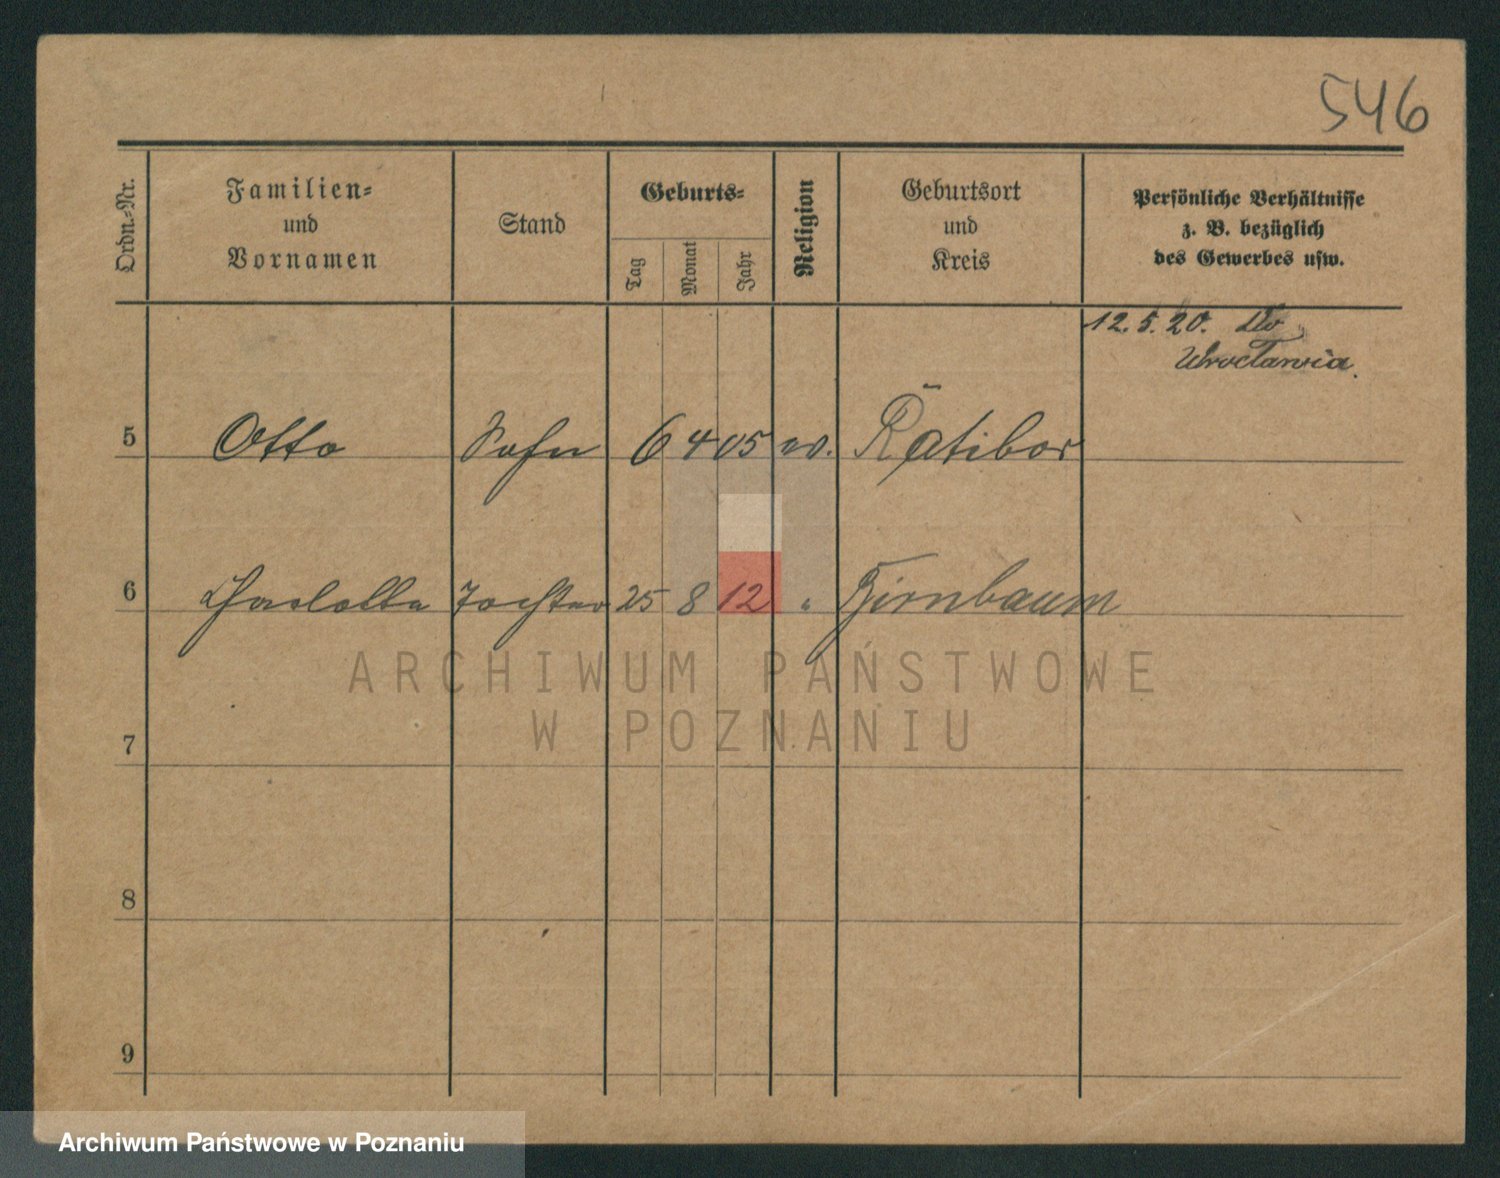 546
Ordn.-Nr.
Familien-
und
Vornamen
Stand
Geburts-
Tag
Monat
Jahr
Religion
Geburtsort
und
Kreis
Persönliche Verhältnisse
z. B. bezüglich
des Gewerbes usw.
12.5.20. Do
Wrocławia.
5 Otto Sohn 6 4 05 ev. Ratibor
6 Charlotte Tochter 25 8 12 " Birnbaum
7
8
9
ARCHIWUM PAŃSTWOWE
W POZNANIU
Archiwum Państwowe w Poznaniu